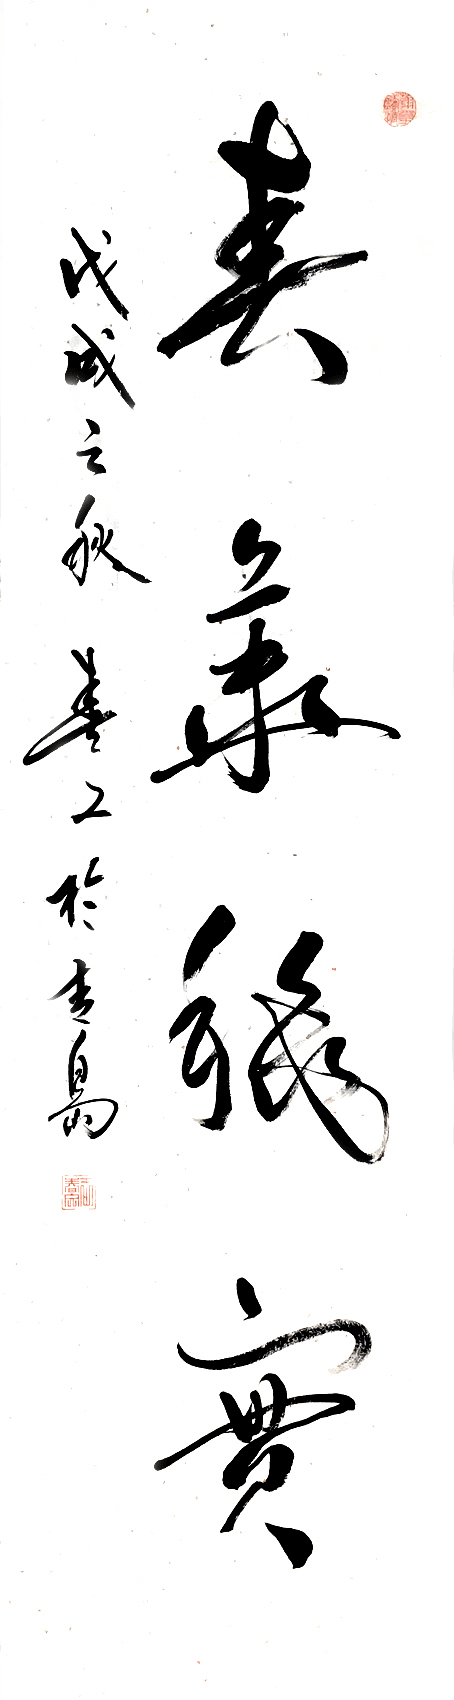 春華秋實
戊戌之秋 工於青島